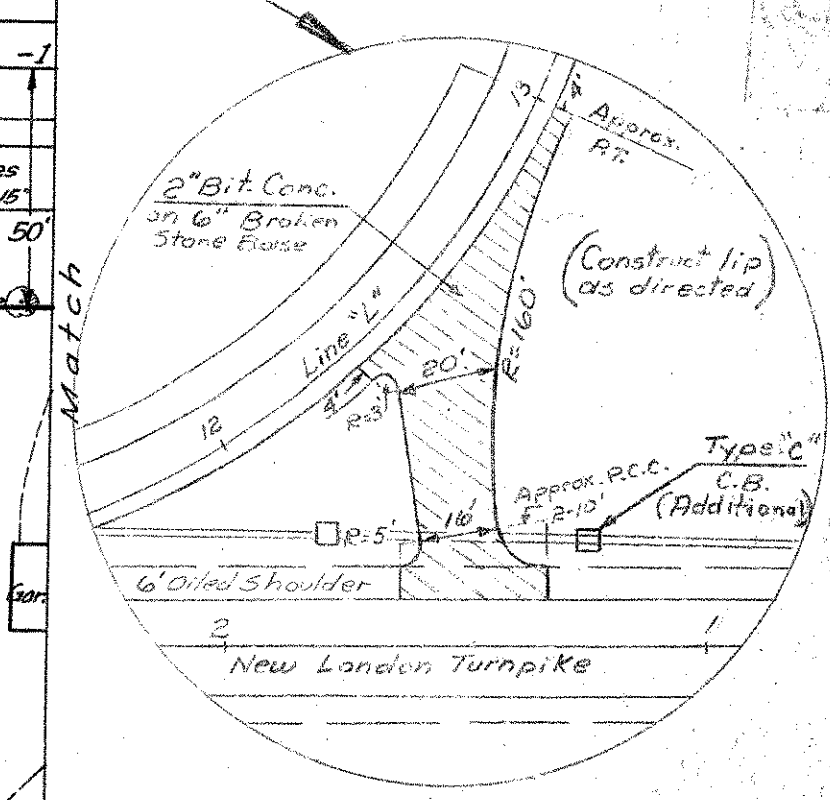 -1
15"
50'
Match
Gar.
13
4'
Approx.
P.T.
2" Bit. Conc.
on 6" Broken
Stone Base
(Construct lip
as directed)
Line "L"
R=160'
20'
4'
R=3'
12
Type "C"
C.B.
(Additional)
Approx. P.C.C.
R=5'
16'
6' Oiled Shoulder
2
1
New London Turnpike